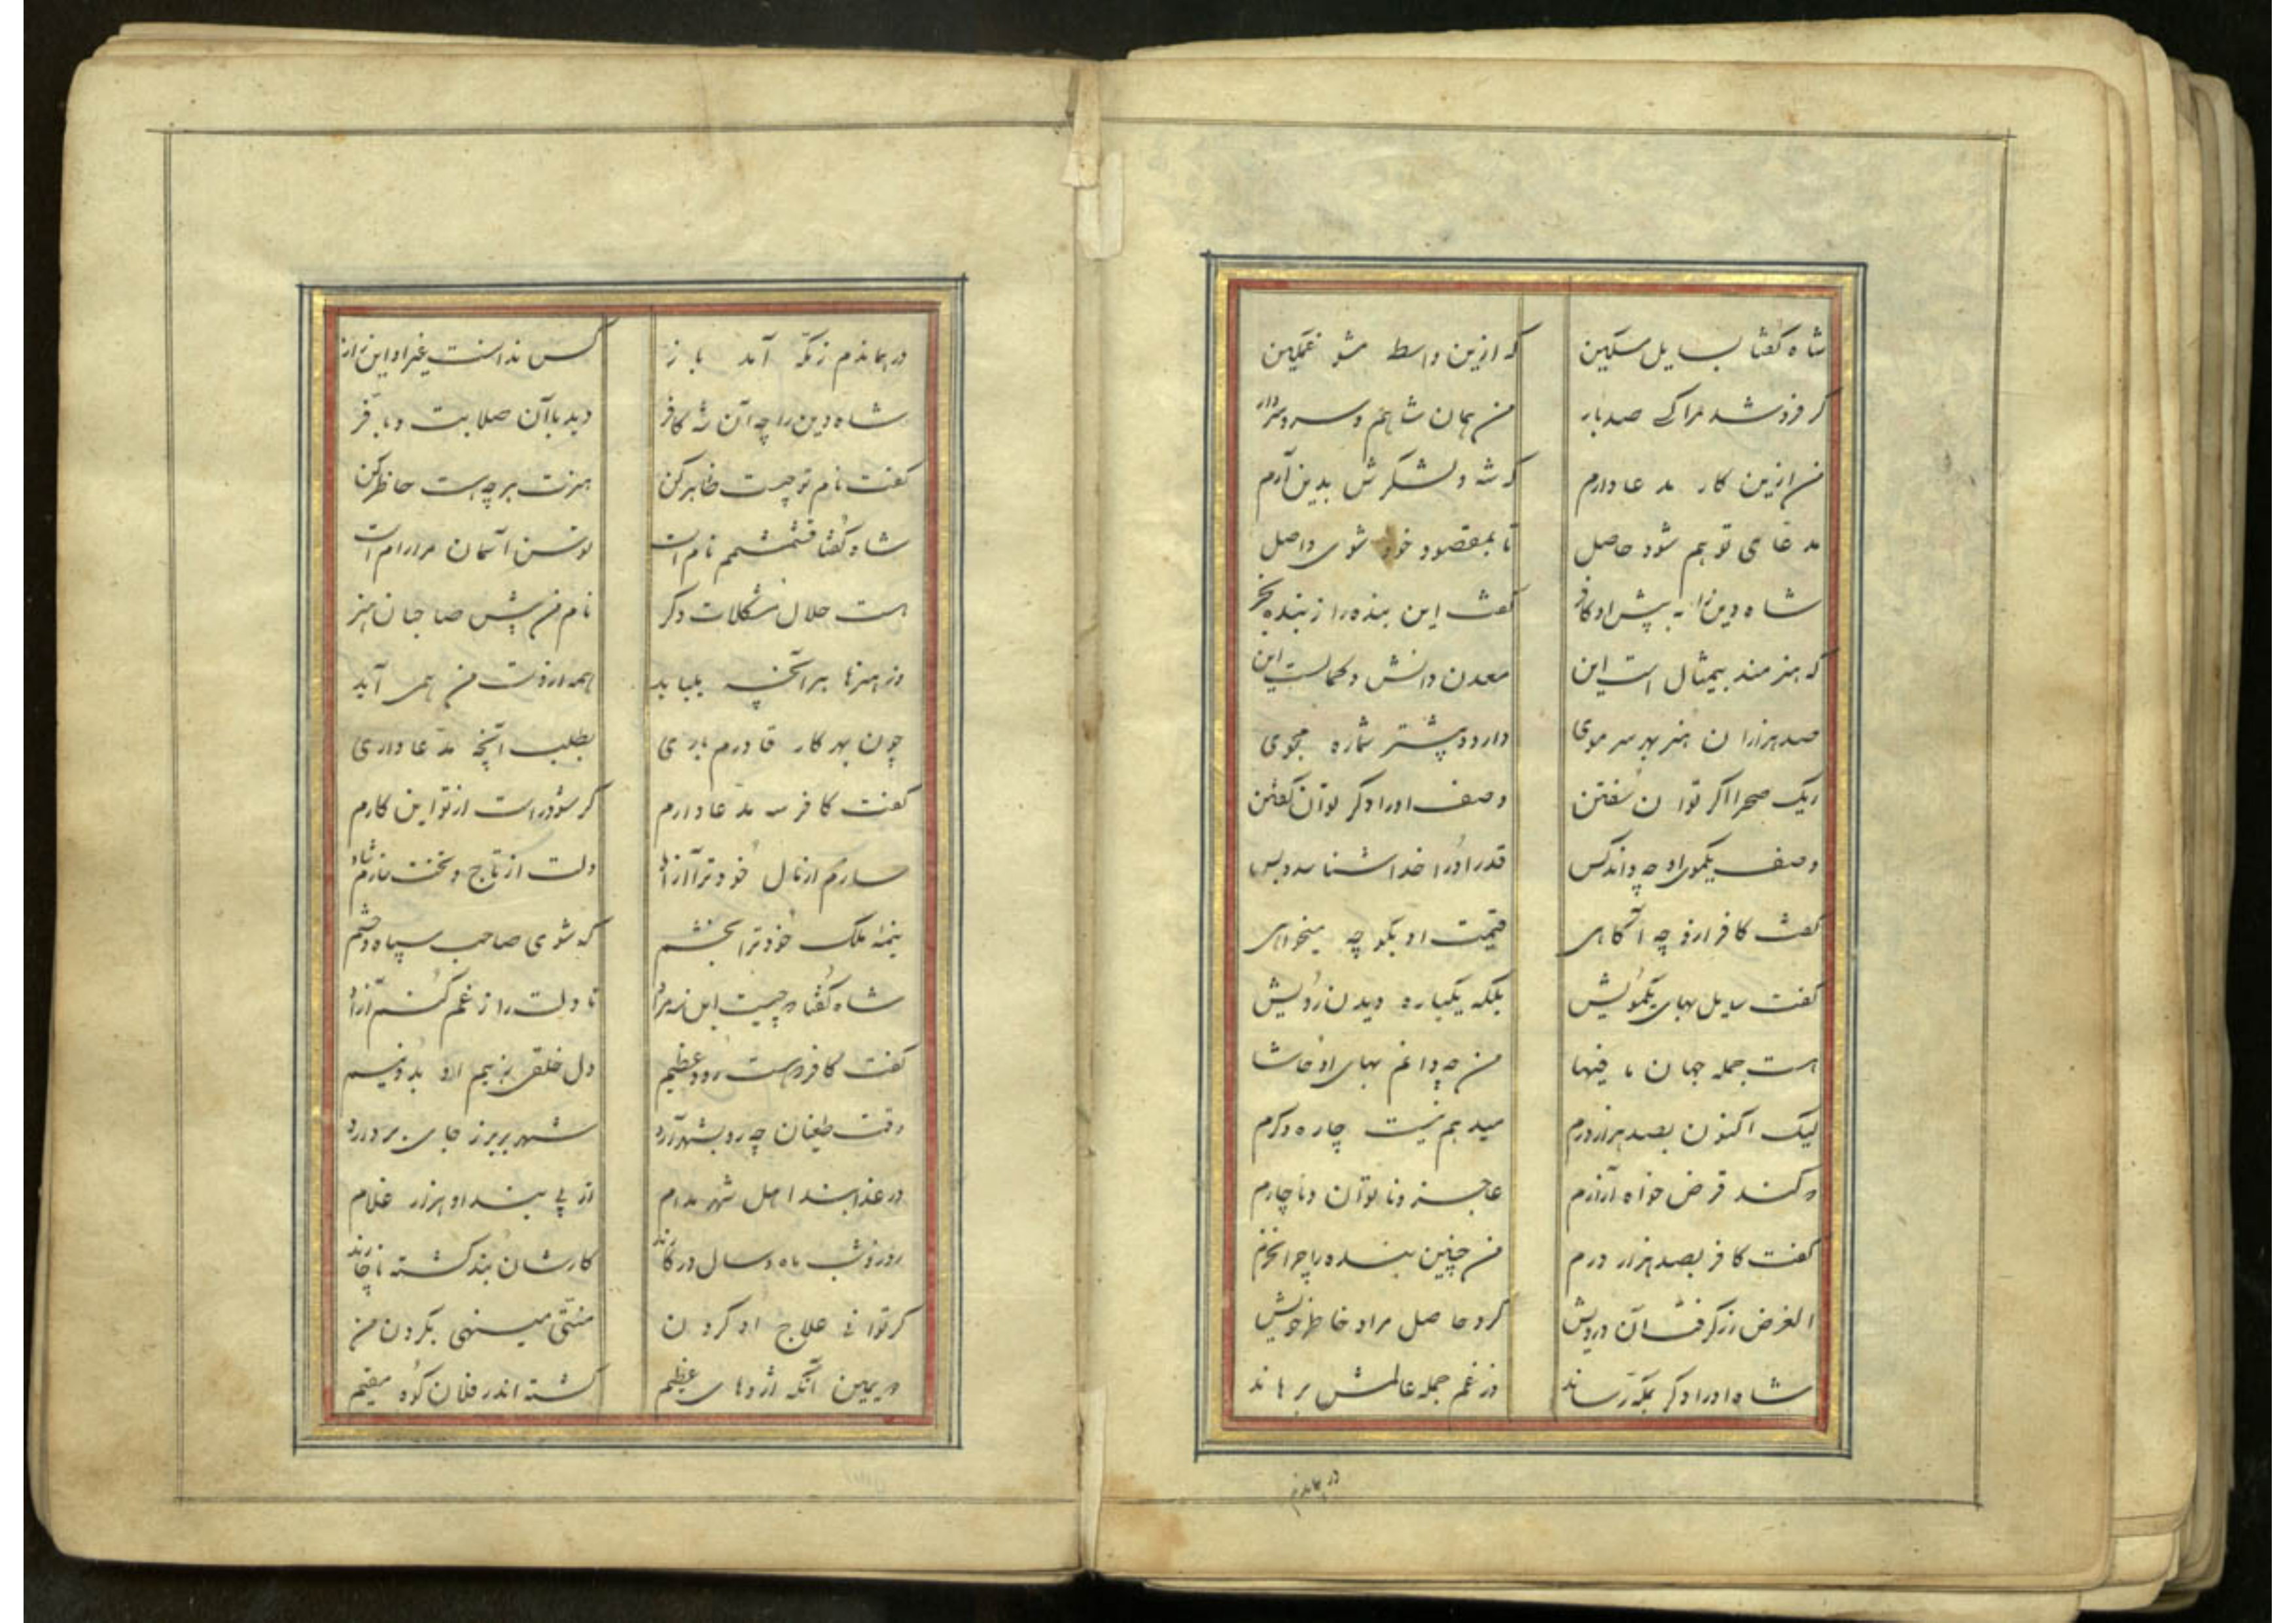 شاه گفتا بسایل مسکین که ازین واسطه مشو غمگین
گر فروشد مرا کسی صدبار من همان شاهم و سر و سردار
من ازین کار مدعا دارم که شه و لشکرش بدین آرم
مدعای تو هم شود حاصل تا بمقصود خود شوی واصل
شاه دین را به پیش او کافر گفت این بنده را ز بنده بخر
که هنرمند بیمثال است این معدن دانش و کمالست این
صد هزاران هنر بهر سر موی دارد و بیشتر شماره مجوی
ریک صحرا اگر توان سفتن وصف او را دگر توان گفتن
وصف یکموی او چه داند کس قدر او را خدا شناسد و بس
گفت کافر ازو چه آگاهی قیمت او بگو چه میخواهی
گفت سایل بهای یکمویش بلکه یکباره دیدن رویش
هست جمله جهان ما فیها من چه دانم بهای او حاشا
لیک اکنون بصد هزار درم میدهم نیست چاره دگرم
که کند قرض خواه آزارم عاجز و ناتوان و ناچارم
گفت کافر بصد هزار درم من چنین بنده را چرا نخرم
الغرض زر گرفت آن درویش کرد حاصل مراد خاطر خویش
شاه او را دگر بمکه رساند وز غم جمله عالمش برهاند
در هماندم
در هماندم ز مکه آمد باز کس ندانست غیر او این راز
شاه دین را چه آن شه کافر دید با آن صلابت و با فر
گفت نام تو چیست ظاهر کن هنرت هر چه هست حاظر کن
شاه گفتا قشمشم نام است توسن آسمان مرا رام است
هست حلال مشکلات دگر نام من پیش صاحبان هنر
وز هنرها هر آنچه بلباید همه از دست من همی آید
چون بهر کار قادرم باری بطلب آنچه مدعا داری
گفت کافر سه مدعا دارم گر شود راست از تو این کارم
سازم از مال خود ترا آزاد دلت از تاج و تخت سازم شاد
نیمه ملک خود ترا بخشم که شوی صاحب سپاه و حشم
شاه گفتا که چیست اول مراد تا دلت را ز غم کنم آزاد
گفت کافر که هست رود عظیم دل خلقی ز بیم او بدونیم
وقت طغیان چه رو بشهر آرد شهر یریز جای بر دارد
در عذابند اهل شهر مدام از پی بند او هزار غلام
روز و شب ماه و سال در کارند کارشان بند گشته ناچارند
گر توانی علاج او کردن منتی مینهی بگردن من
دیمین آنکه اژدهای عظیم گشته اندر فلان کوه مقیم